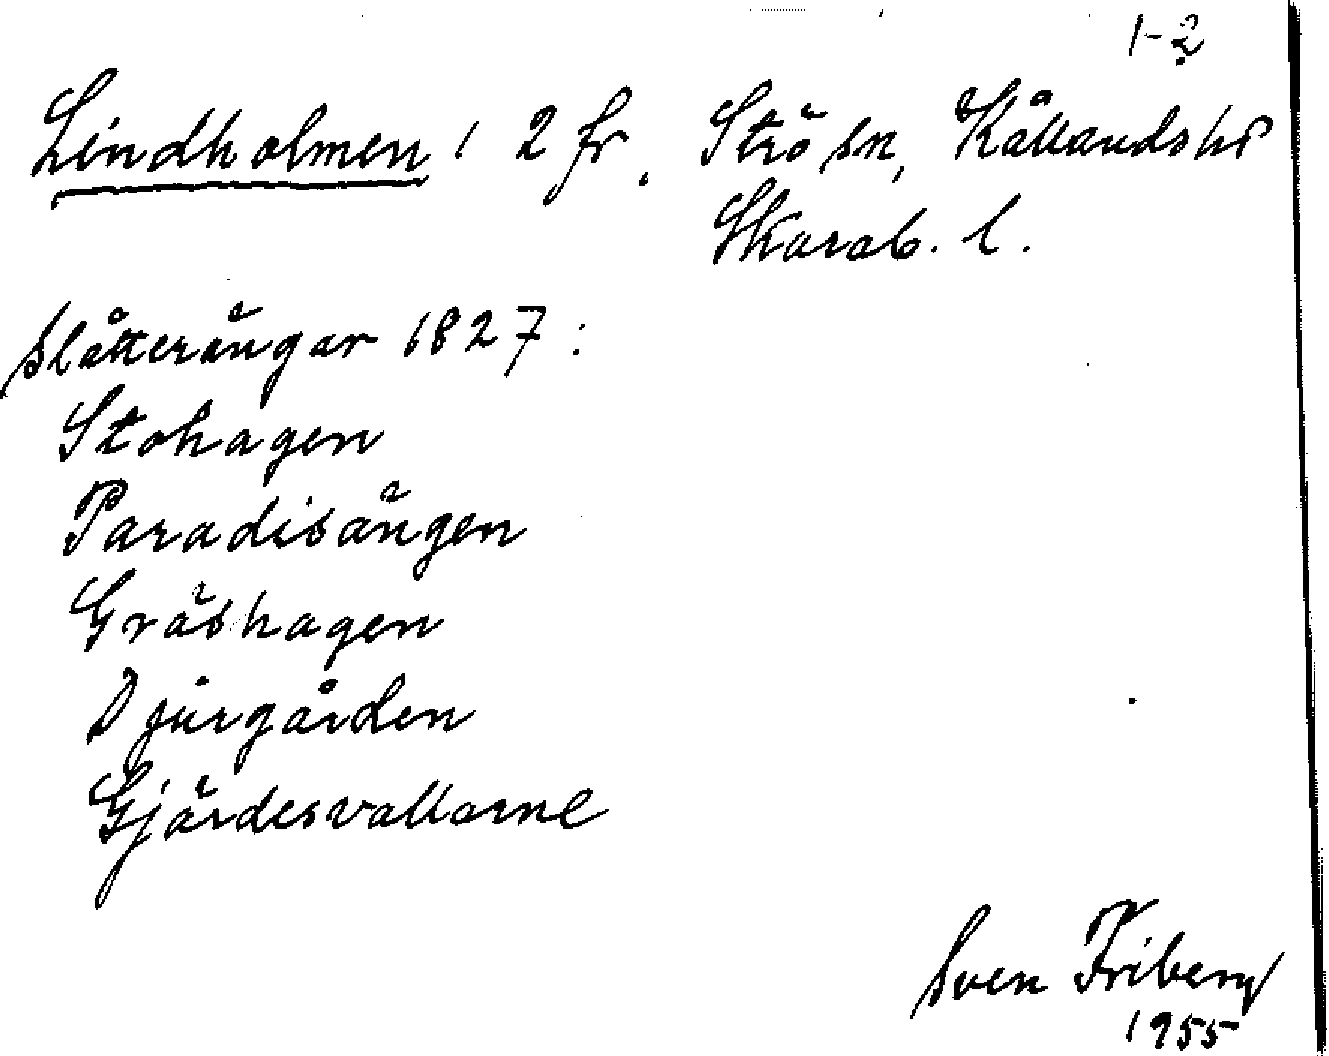 1-2
Lindholmen 1 2 fr. Strö sn, Kållands hd
Skarab. l.
Slåtterängar 1827:
Stohagen
Paradisängen
Gräshagen
Djurgården
Gjärdesvallarne
Sven Friberg
1955